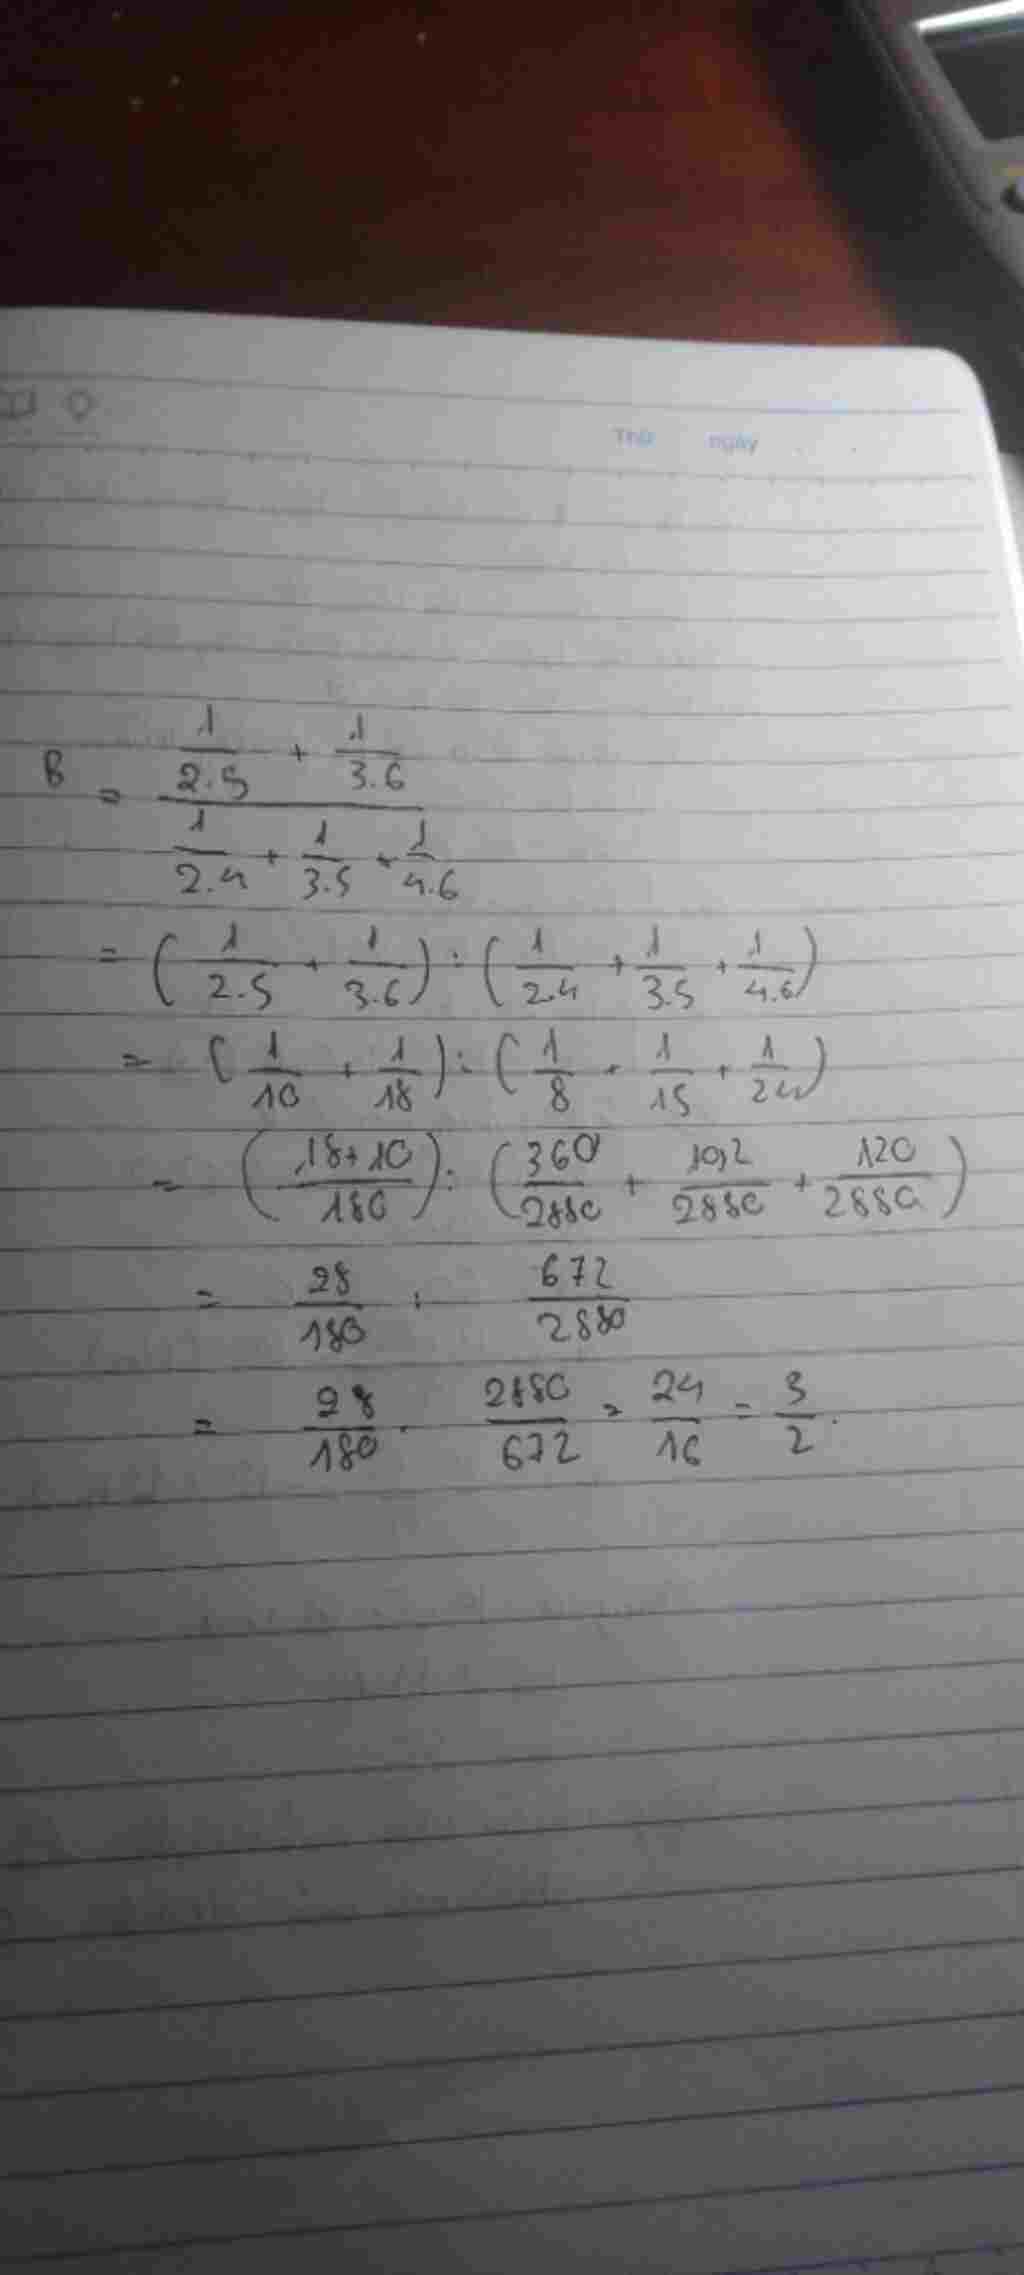 Thứ ngày
B = (1/2.5 + 1/3.6) / (1/2.4 + 1/3.5 + 1/4.6)
= (1/2.5 + 1/3.6) : (1/2.4 + 1/3.5 + 1/4.6)
= (1/10 + 1/18) : (1/8 + 1/15 + 1/24)
= (18+10/180) : (360/2880 + 192/2880 + 120/2880)
= 28/180 : 672/2880
= 28/180 . 2880/672 = 24/16 = 3/2.